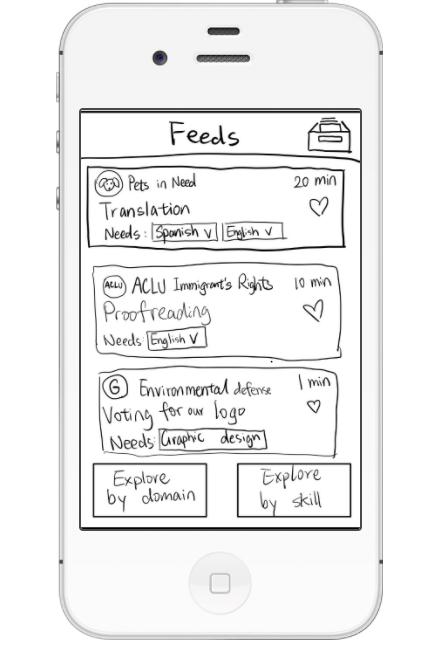 Feeds
Pets in Need 20 min
Translation
Needs: Spanish √ English √
ACLU ACLU Immigrant's Rights 10 min
Proofreading
Needs: English √
G Environmental defense 1 min
Voting for our logo
Needs: Graphic design
Explore by domain
Explore by skill